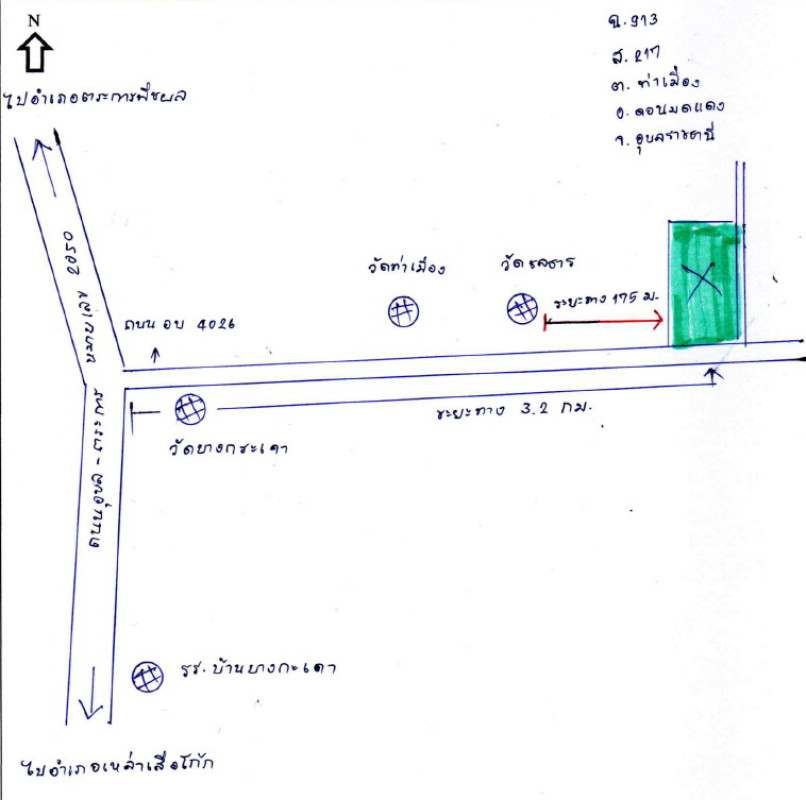 N
ไปอำเภอตระการพืชผล
ฉ. 913
ส. 217
ต. ท่าเมือง
อ. ดอนมดแดง
จ. อุบลราชธานี
ทางหลวง 2050
ถนน อบ 4026
วัดท่าเมือง
วัดชลธาร
ระยะทาง 175 ม.
ระยะทาง 3.2 กม.
วัดบางกะเดา
ถนนอุบล-ตระการ
รร. บ้านบางกะเดา
ไปอำเภอเหล่าเสือโก้ก